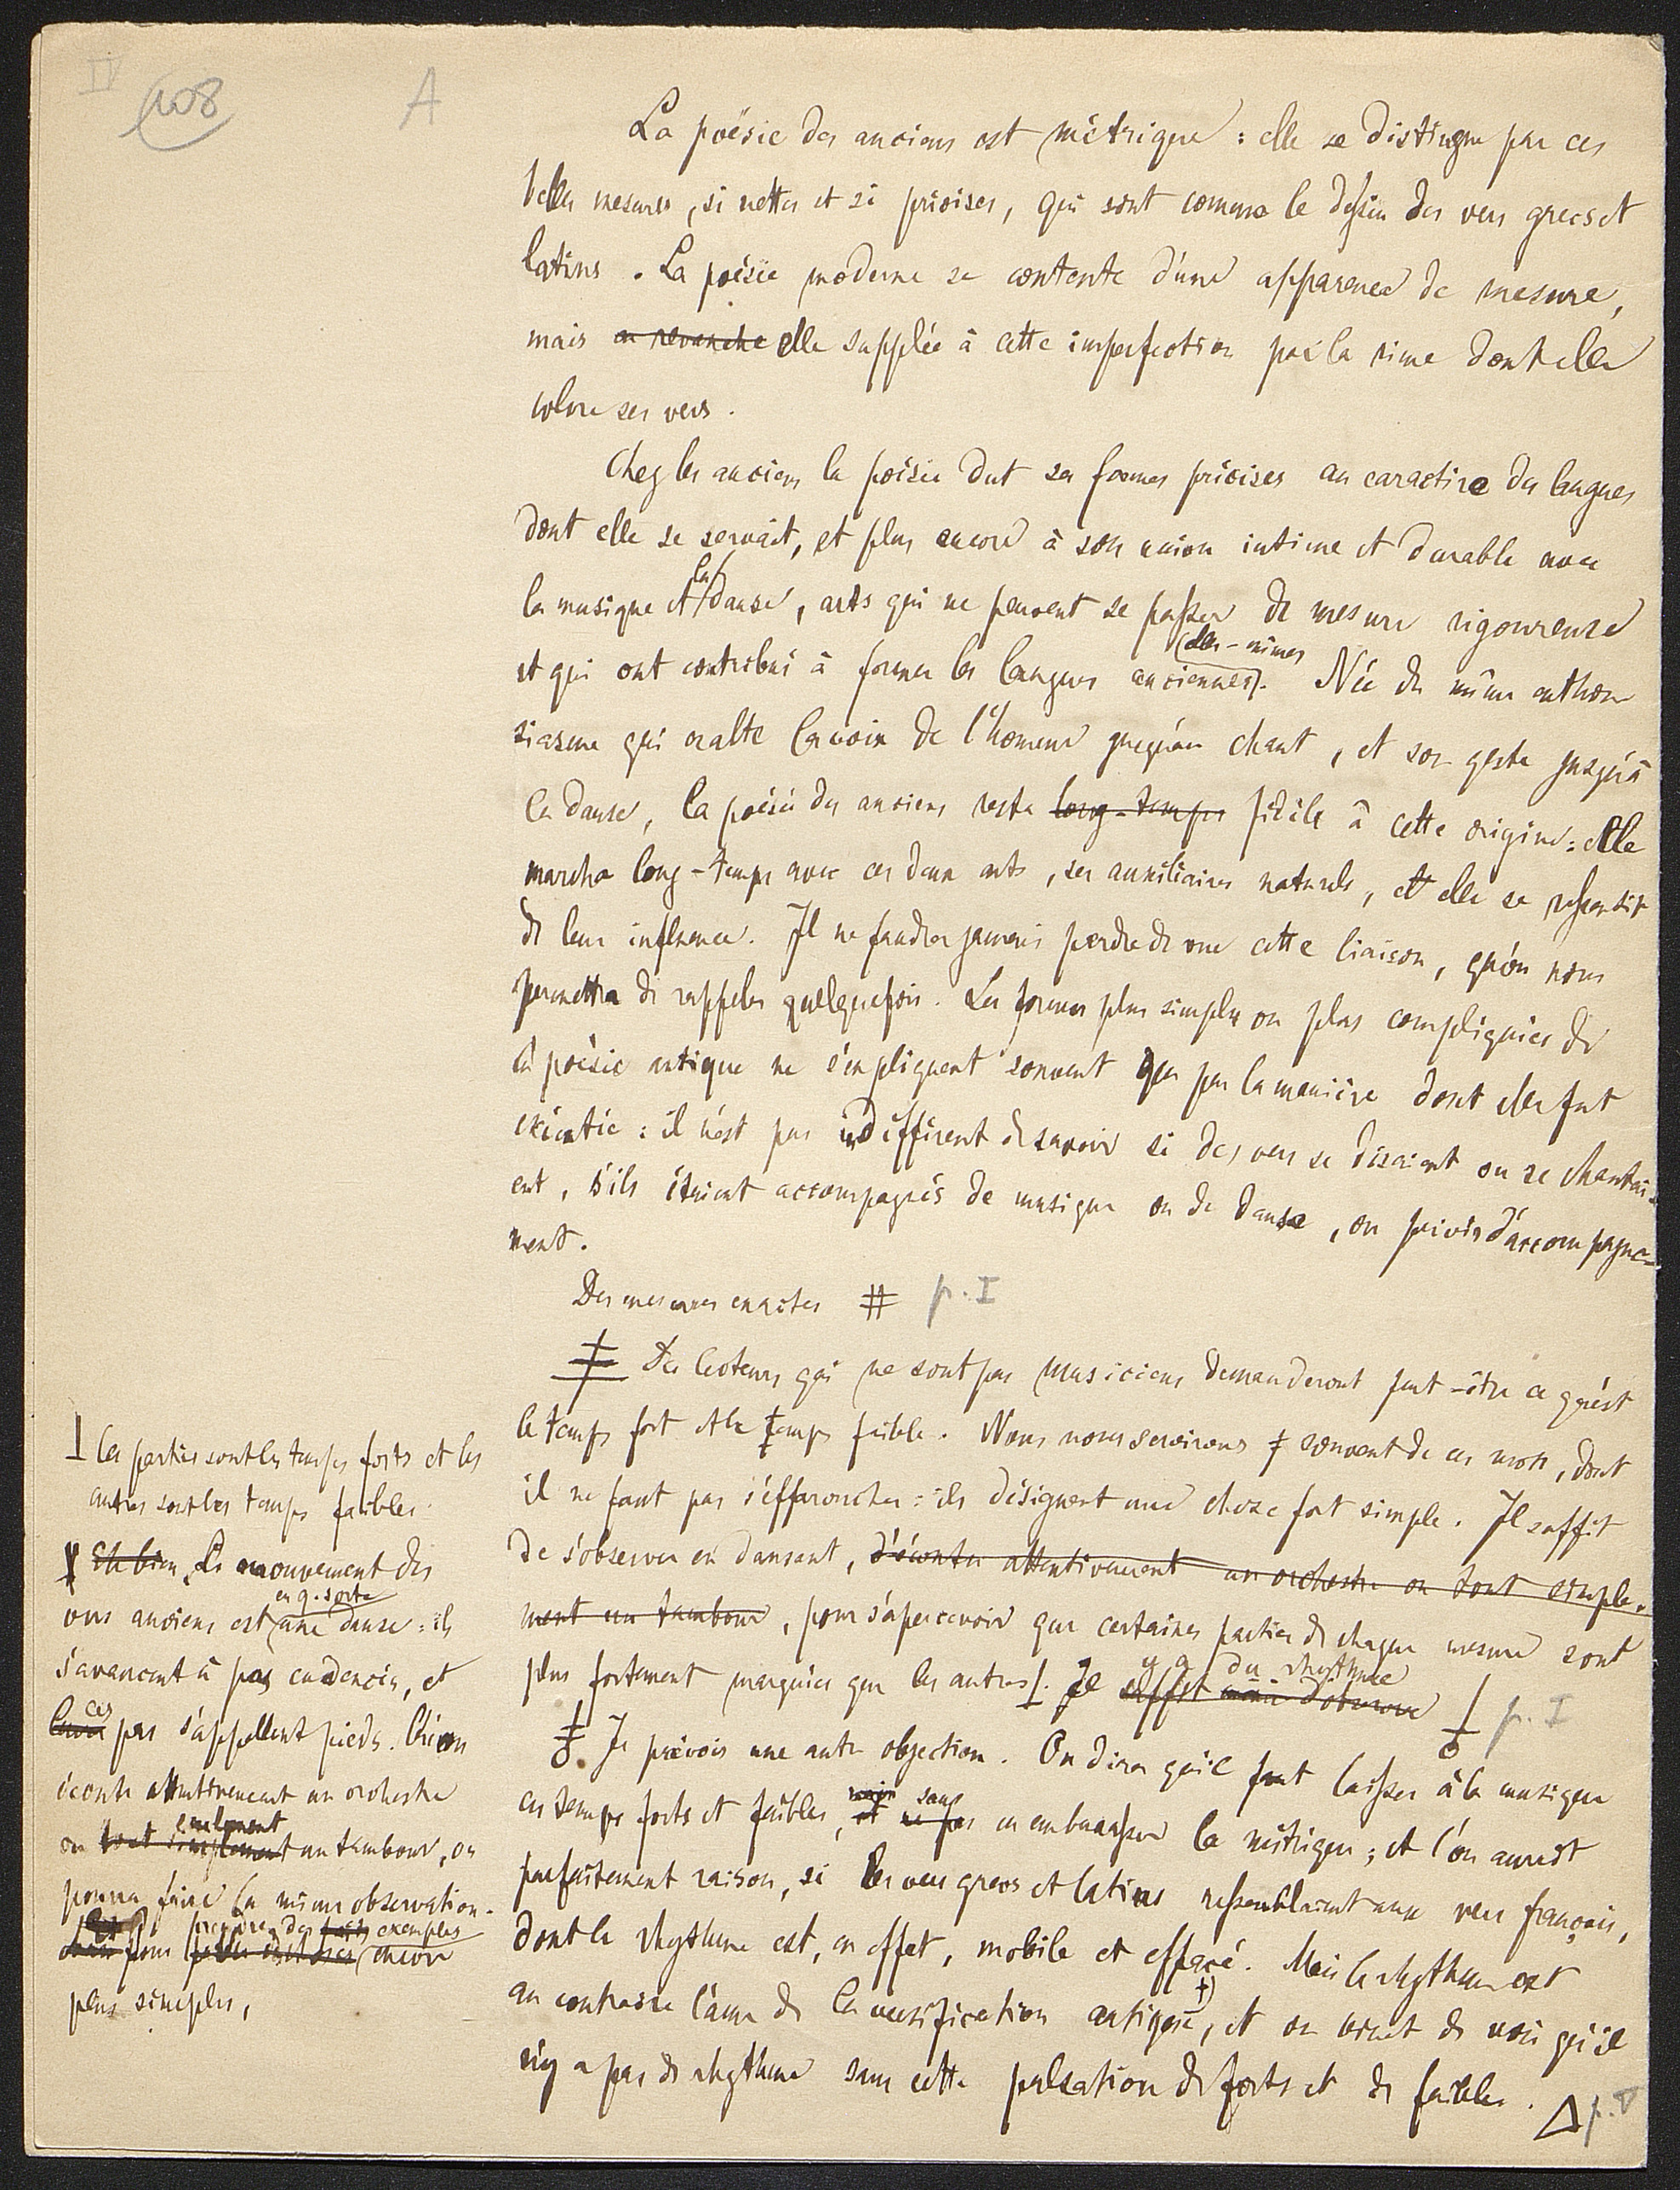 IV
108
A
La poësie des anciens est métrique : elle se distingue par ces
belles mesures, si nettes et si précises, qui sont comme le dessin des vers grecs et
latins. La poésie moderne se contente d'une apparence de mesure,
mais en revanche elle supplée à cette imperfection par la rime dont elle
colore ses vers.
Chez les anciens la poésie dut ses formes précises au caractère des langues
dont elle se servait, et plus encore à son union intime et durable avec
la musique et la danse, arts qui ne peuvent se passer de mesure rigoureuse
et qui ont contribué à former les langues anciennes (elles-mêmes). Née du même enthou
siasme qui exalte la voix de l'homme jusqu'au chant, et son geste jusqu'à
la danse, la poésie des anciens resta long-temps fidèle à cette origine : elle
marcha long-temps avec ces deux arts, ses auxiliaires naturels, et elle se ressentit
de leur influence. Il ne faudra jamais perdre de vue cette liaison, qu'on nous
permettra de rappeler quelquefois. Les formes plus simples ou plus compliquées de
la poësie antique ne s'expliquent souvent que par la manière dont elle fut
exécutée : il n'est pas indifférent de savoir si des vers se disaient ou se chantai-
ent, s'ils étaient accompagnés de musique ou de danse, ou privés d'accompagne-
ment.
Des mesures exactes # p. I
‡ Des lecteurs qui ne sont pas musiciens demanderont peut-être ce qu'est
le temps fort et le temps faible. Nous nous servirons souvent de ces mots, dont
il ne faut pas s'effaroucher : ils désignent une chose fort simple. Il suffit
de s'observer en dansant, d'écouter attentivement un orchestre ou tout simple-
ment un tambour, pour s'apercevoir que certaines parties de chaque mesure sont
plus fortement marquées que les autres. Il suffit même d'observer y a du rhythme p. I
Je prévois une autre objection. On dira qu'il faut laisser à la musique
ces temps forts et faibles, et ne pas mais sans en embarrasser la métrique ; et l'on aurait
parfaitement raison, si les vers grecs et latins ressemblaient aux vers français,
dont le rhythme est, en effet, mobile et effacé. Mais le rhythme est
au contraire l'âme de la versification antique +), et on vient de voir qu'il
n'y a pas de rhythme sans cette pulsation de forts et de faibles. Δ p. V
⊥ les parties sont les temps forts et les
autres sont les temps faibles.
Eh bien, Le mouvement des
vers anciens est (en q. sorte) une danse : ils
s'avancent à pas cadencés, et
leurs ces pas s'appellent pieds. Si on
écoute attentivement un orchestre
ou tout simplement seulement un tambour, on
pourra faire la même observation.
pour prendre des exemples encore
plus simples,